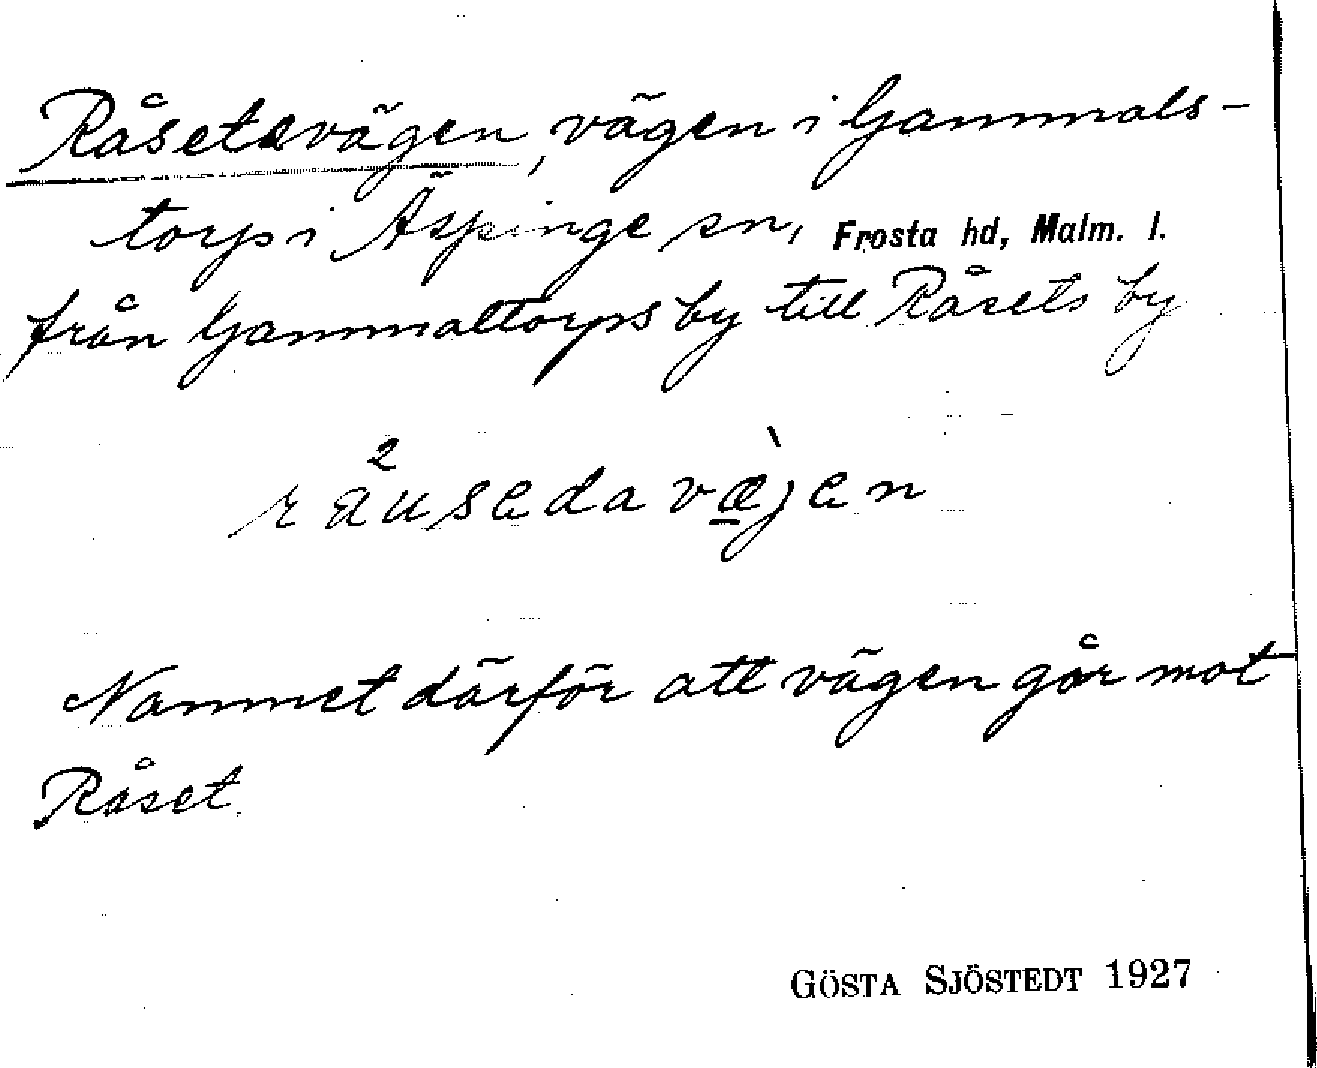 Råsetavägen, vägen i Gammals-
torp i Äspinge sn, Frosta hd, Malm. l.
från Gammaltorps by till Råsets by
råusedavæjen
Namnet därför att vägen går mot
Råset.
GÖSTA SJÖSTEDT 1927